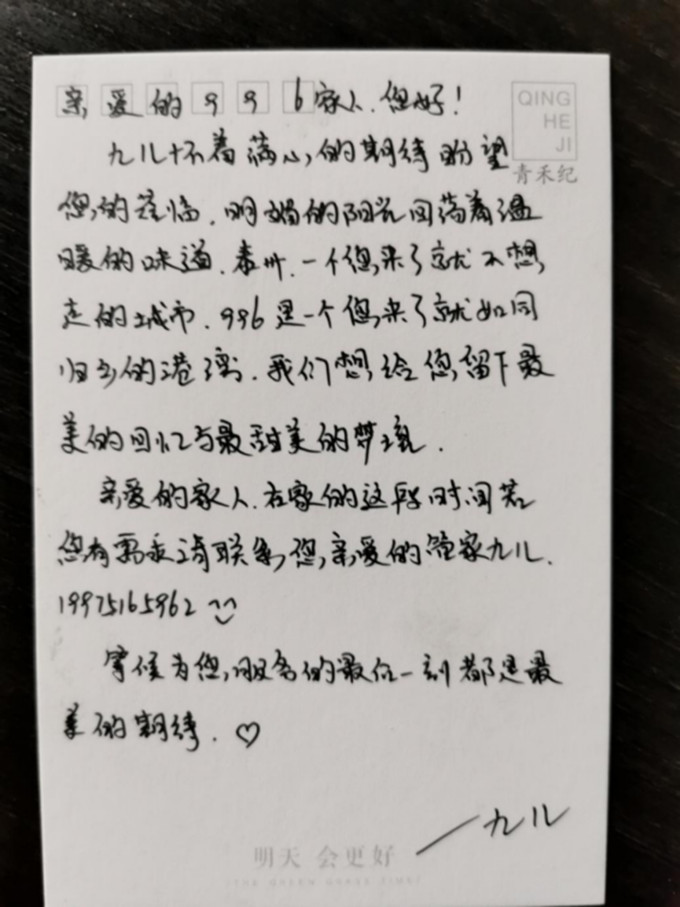 亲爱的996家人.您好!
QING
HE
JI
青禾纪
九儿怀着满心的期待盼望
您的莅临.明媚的阳光回荡着温
暖的味道.泰州.一个您来了就不想
走的城市.996是一个您来了就如同
归乡的港湾.我们想给您留下最
美的回忆与最甜美的梦境.
亲爱的家人.在家的这段时间若
您有需求请联系您亲爱的管家九儿.
19975165962
等候为您服务的最后一刻都是最
美的期待.♡
一九儿
明天 会更好